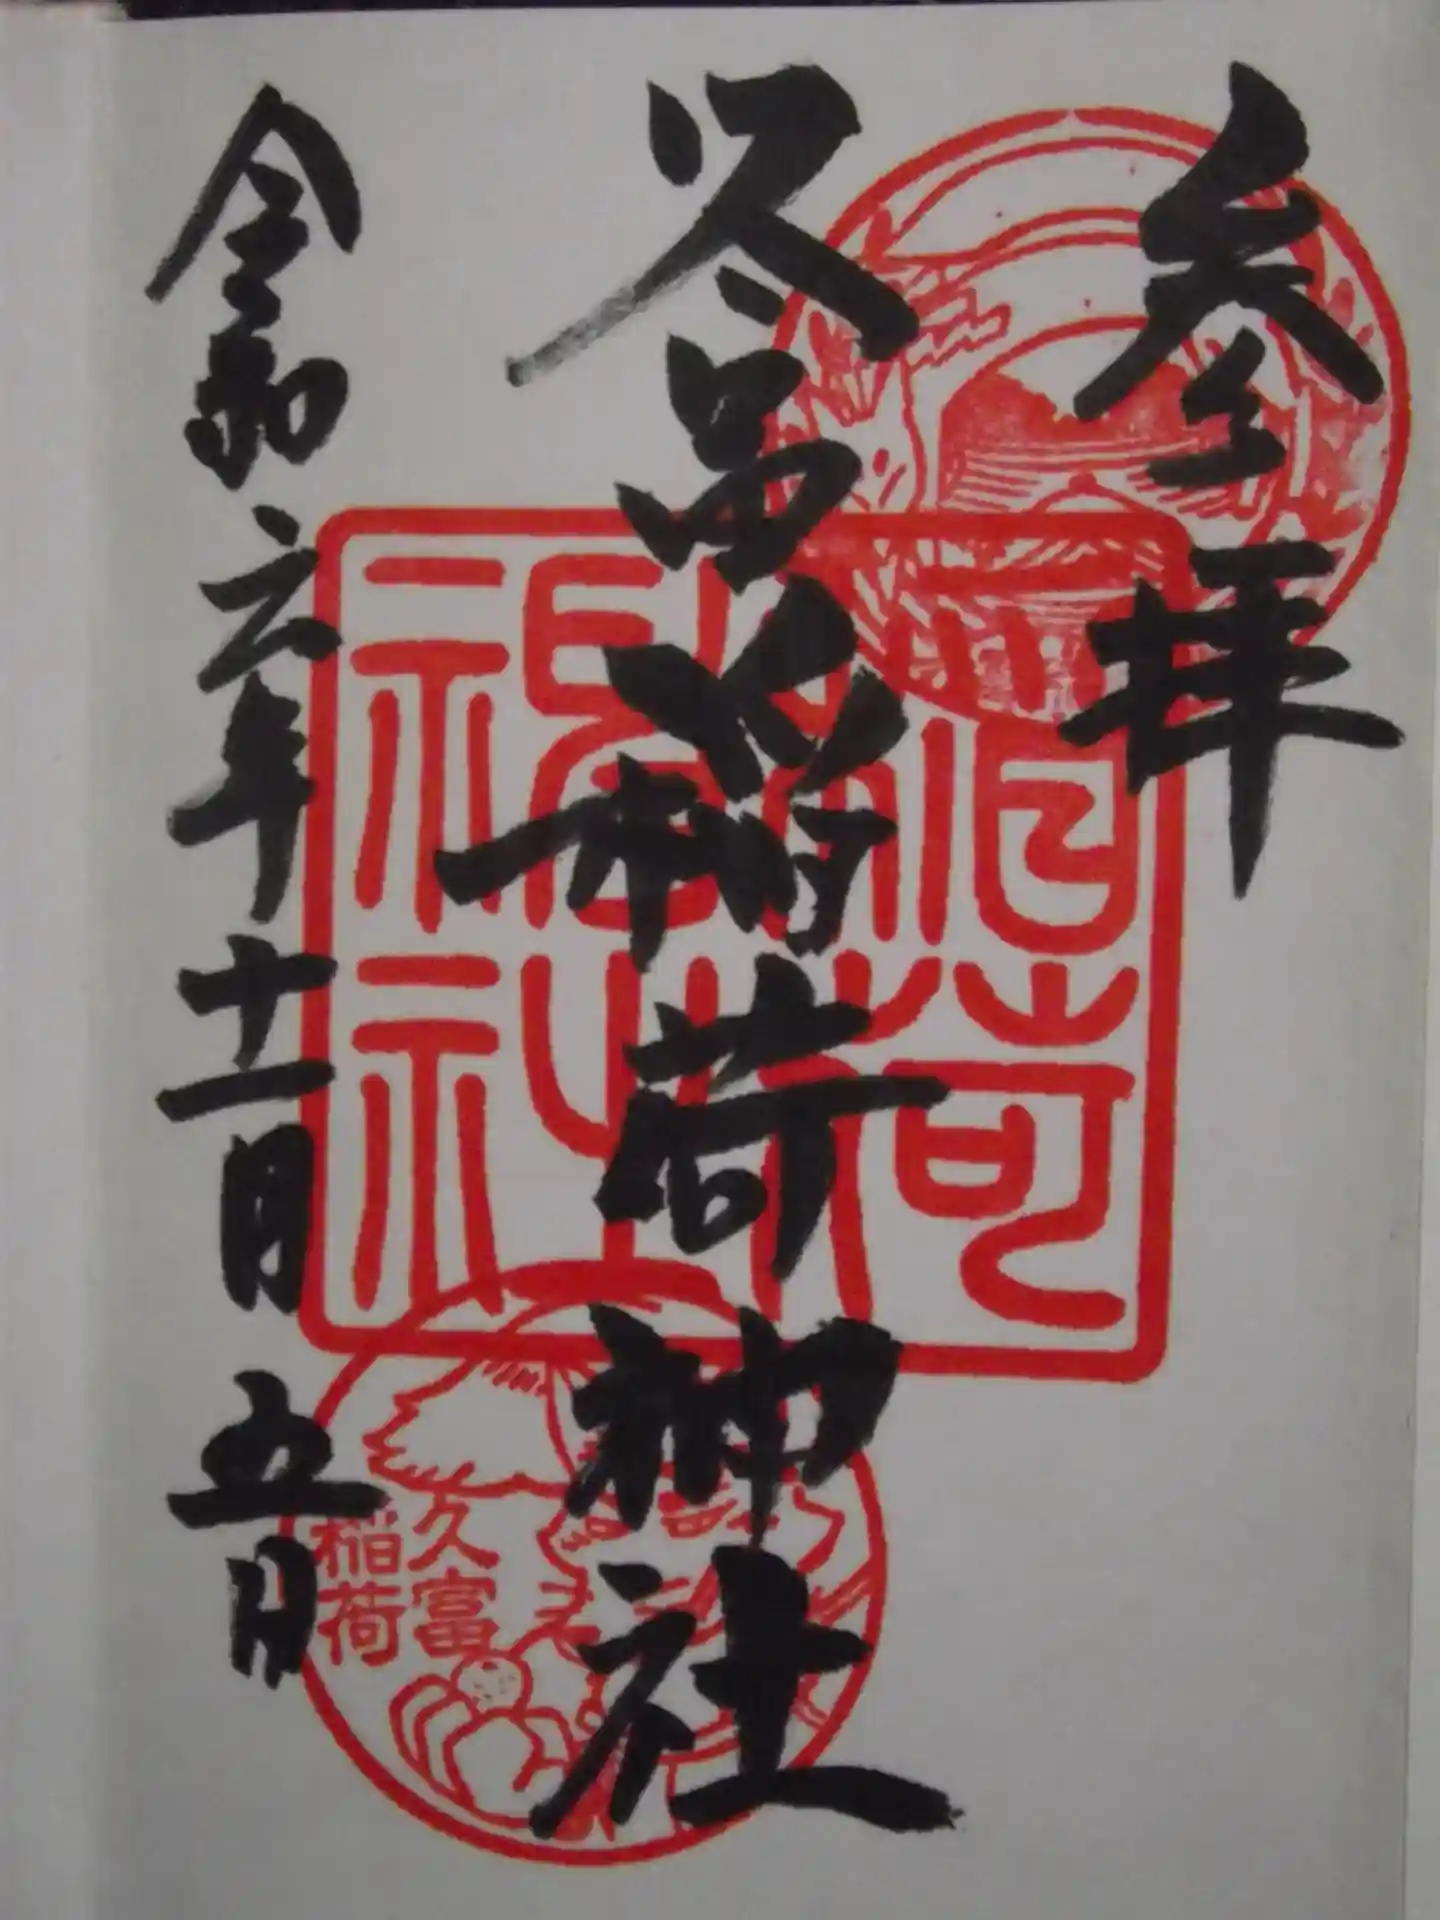 参拝
久富稲荷神社
令和六年十一月五日
稲荷神社
久富
稲荷